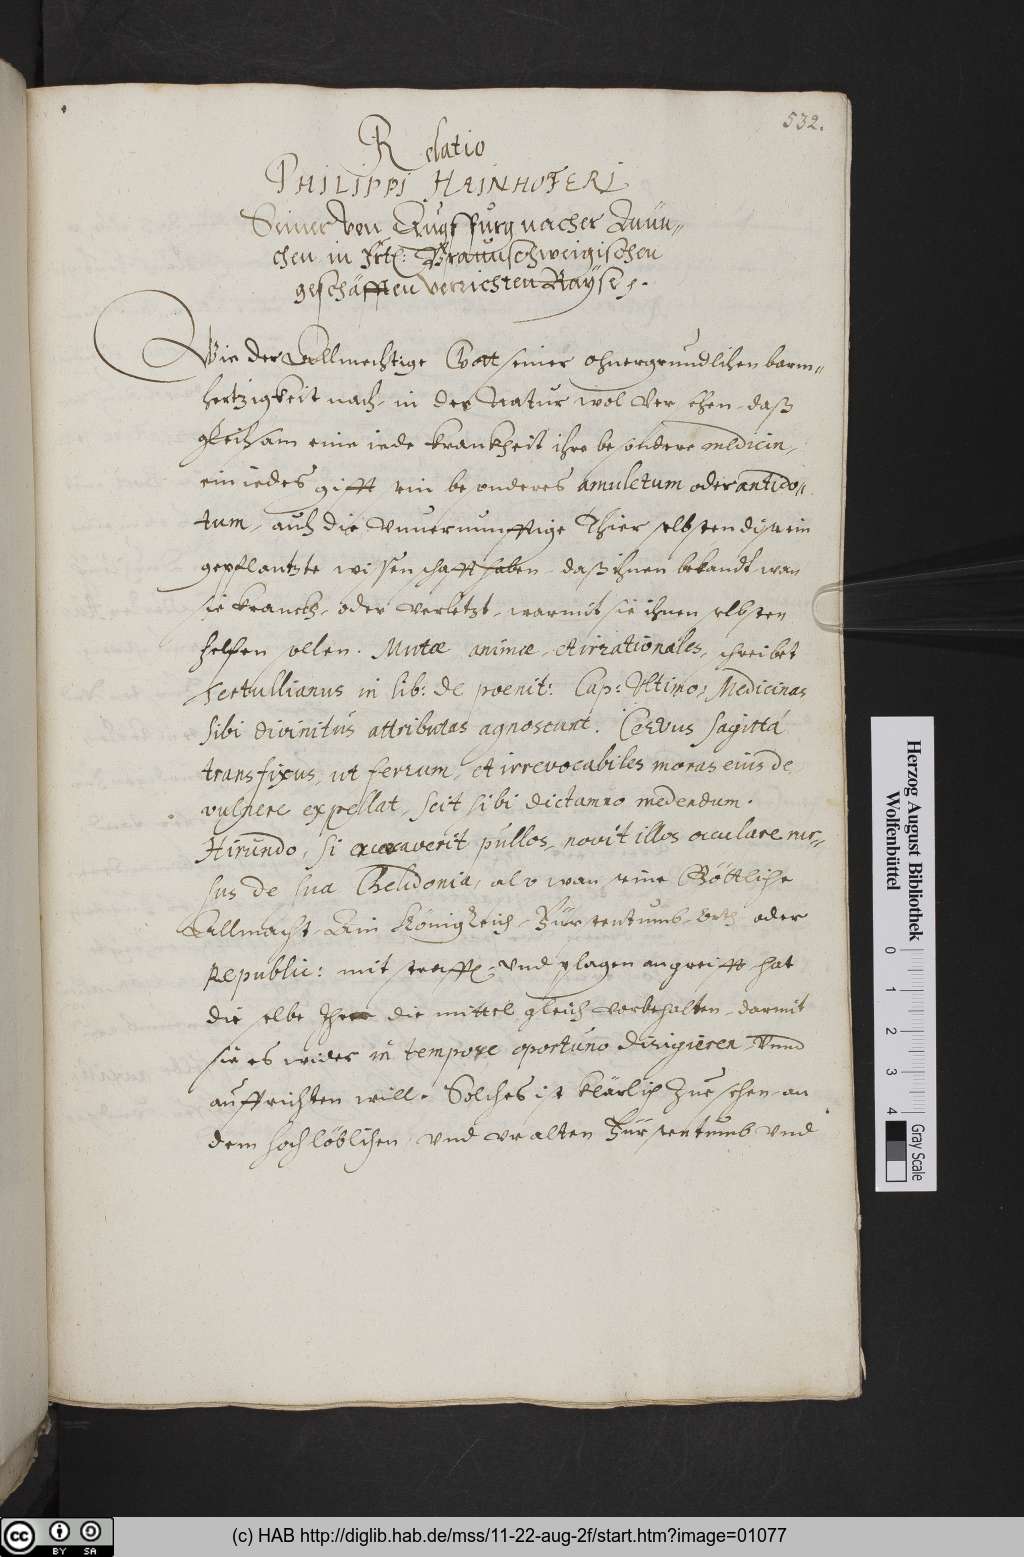 532.
Relatio
PHILIPPI HAINHOFERI
Seiner von Augspurg nacher Müün-
chen in Frtl: Braunschweigischen
geschäfften verrichten Raÿse.
Wie der Allmechtige Gott seiner ohnergrundlichen barm-
hertzigkeit nach, in der Natur wol versehen, daß
gleichsam eine iede kranckheit ihre besondere medicin,
ein iedes gifft ein besonderes amuletum oder antido-
tum, auch die vnuernunfftige Thier selbsten dise ein
gepflantzte wissenschafft haben, daß ihnen bekandt wan
sie kranckh, oder verletzt, warmit sie ihnen selbsten
helfen sollen. Mutæ animæ, et irrationales, schreibet
Tertullianus in lib: de poenit: Cap: Vltimo, Medicinas
sibi divinitùs attributas agnoscunt. Cervus sagittá
transfixus, ut ferrum, et irrevocabiles moras eius de
vulnere expellat, scit sibi dictamno medendum.
Hirundo, si excæcaverit pullos, novit illos oculare rur-
sus de sua Chelidonia, also wan seine Göttliche
Allmacht, Ain Königreich, Fürstentumb, oder
Republic: mit straff, vnd plagen angreifft hat
die selbe Ihr die mittel gleich vorbehalten, darmit
sie es wider in tempore oportuno dirigieren vnnd
auffrichten will. Solches ist klärlich zue sehen, an
dem hochlöblichen, vnd vralten Fürstentumb vnd
Herzog August Bibliothek
Wolfenbüttel
0 1 2 3 4
Gray Scale
cc BY SA
(c) HAB http://diglib.hab.de/mss/11-22-aug-2f/start.htm?image=01077